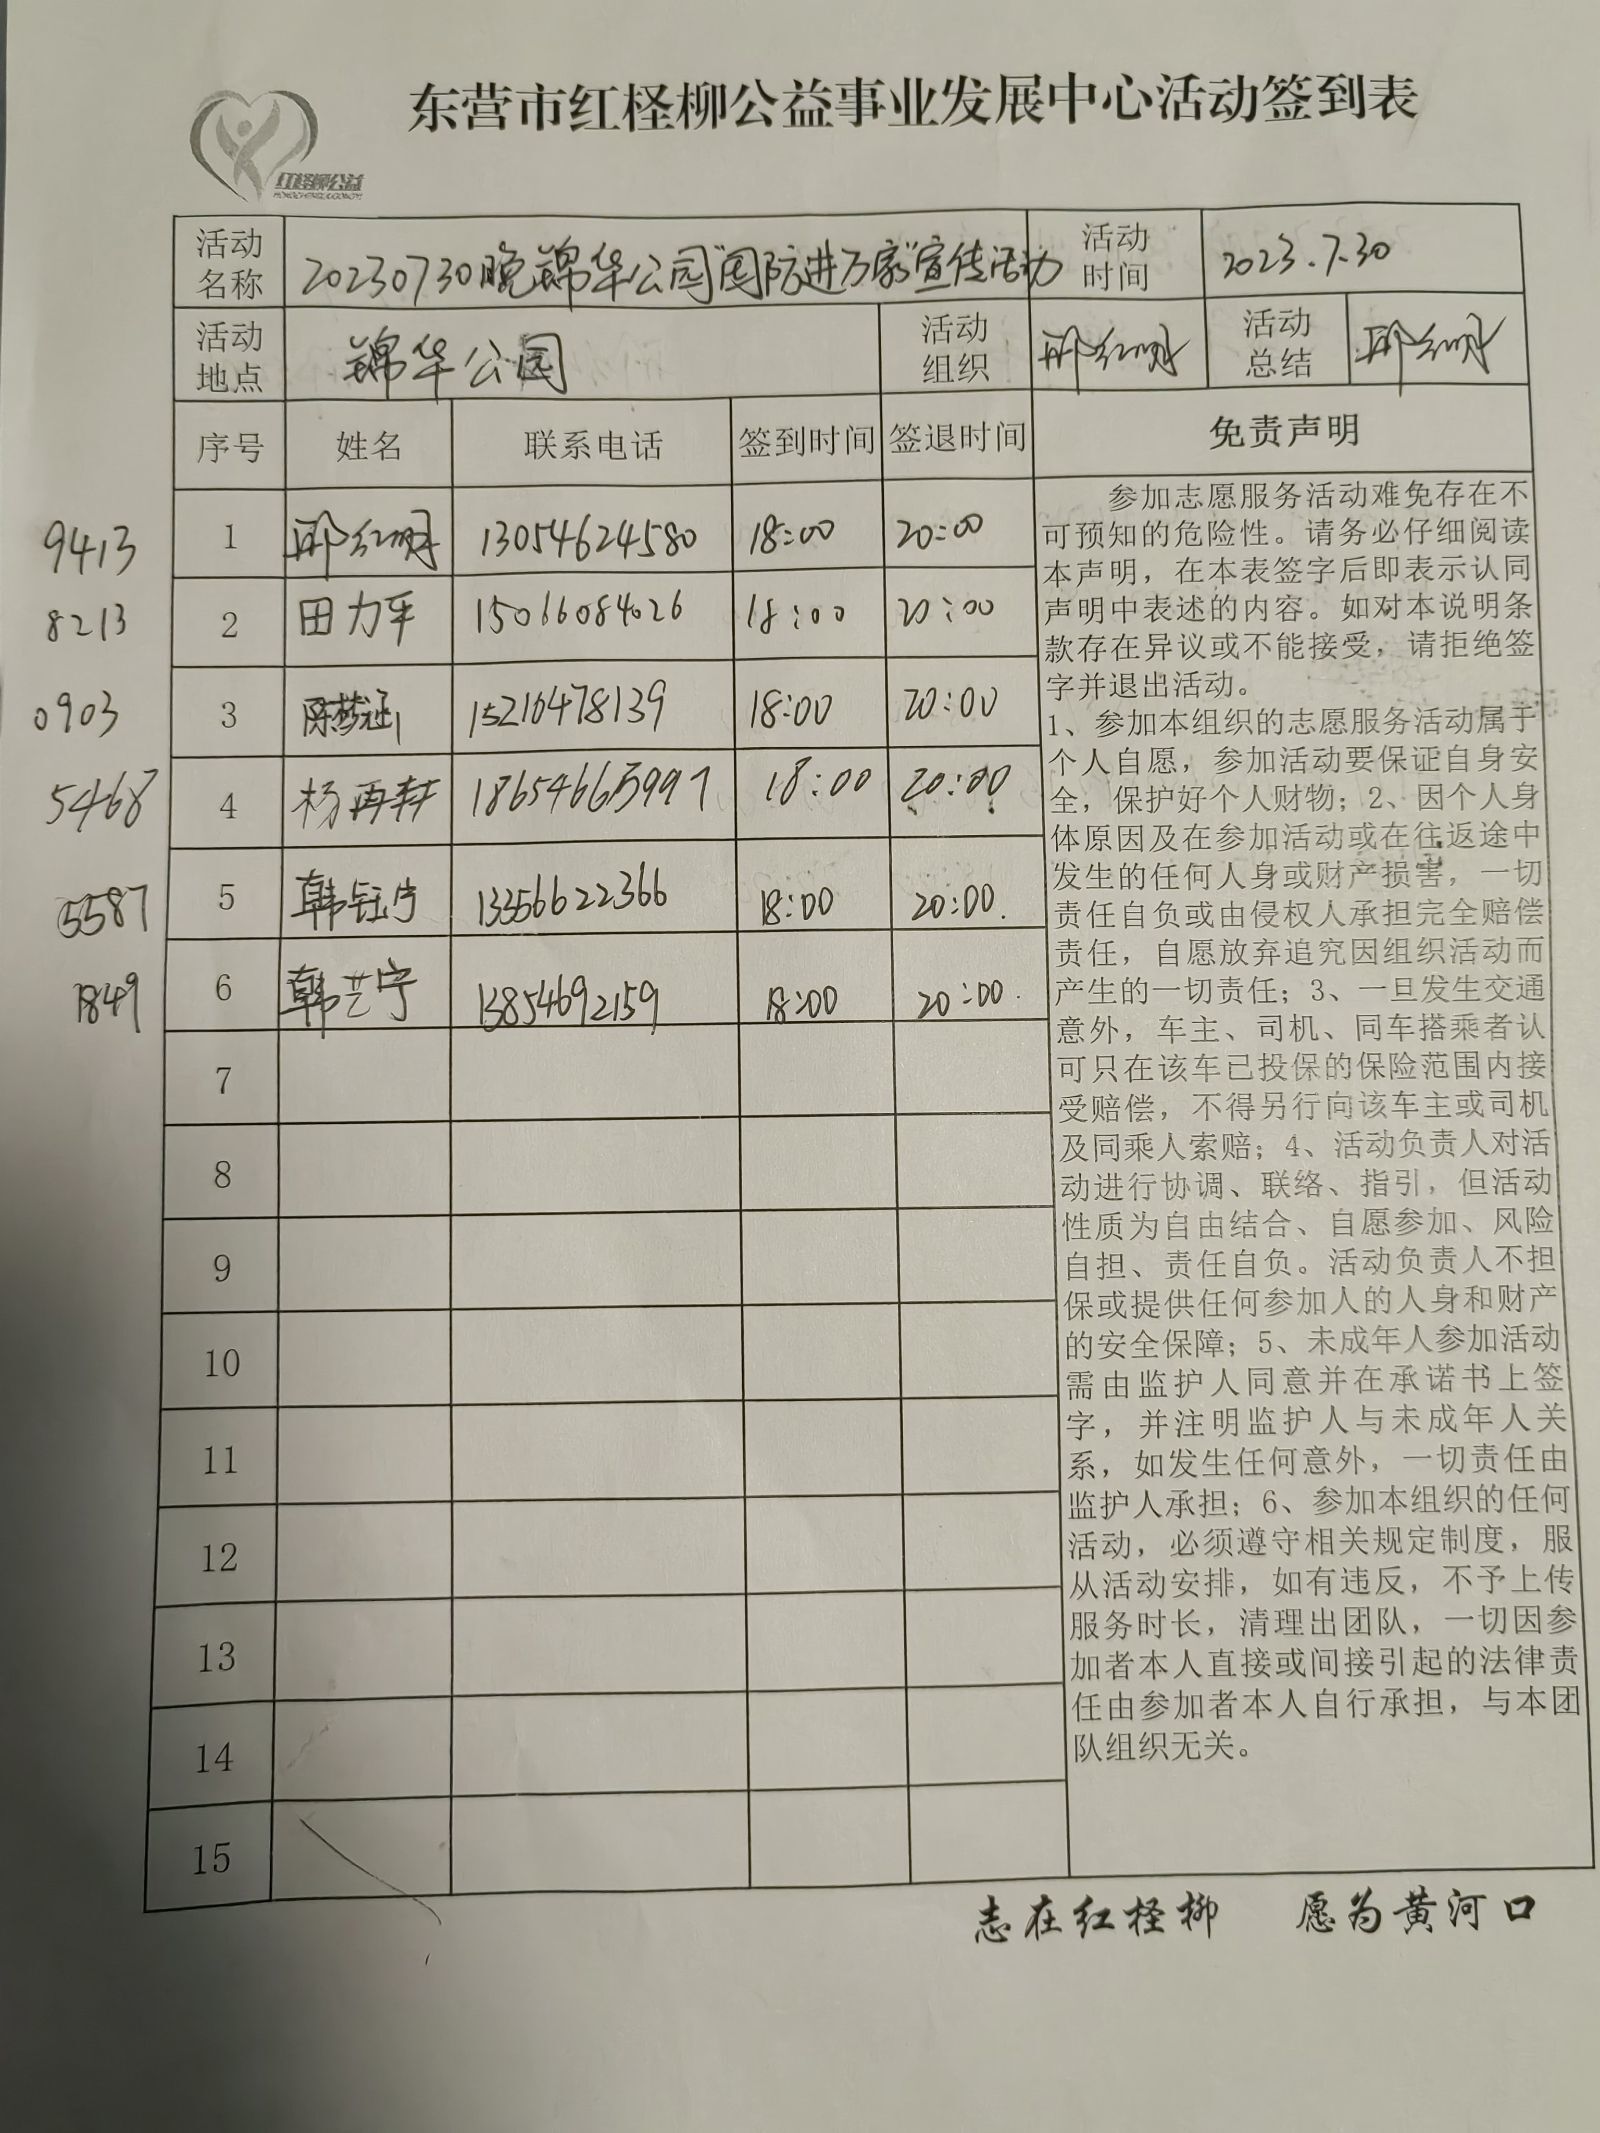 东营市红柽柳公益事业发展中心活动签到表
红柽柳公益
活动名称 20230730晚锦华公园"国防进万家"宣传活动 活动时间 2023.7.30
活动地点 锦华公园 活动组织 邢红明 活动总结 邢红明
序号 姓名 联系电话 签到时间 签退时间 免责声明
9413 1 邢红明 13054624580 18:00 20:00
8213 2 田力军 15066084026 18:00 20:00
0903 3 陈梦涵 15210478139 18:00 20:00
5468 4 杨再耕 18:00 20:00
5587 5 韩钰宁 13356622366 18:00 20:00.
1849 6 韩艺宁 13854692159 18:00 20:00.
7
8
9
10
11
12
13
14
15
参加志愿服务活动难免存在不
可预知的危险性。请务必仔细阅读
本声明，在本表签字后即表示认同
声明中表述的内容。如对本说明条
款存在异议或不能接受，请拒绝签
字并退出活动。
1、参加本组织的志愿服务活动属于
个人自愿，参加活动要保证自身安
全，保护好个人财物；2、因个人身
体原因及在参加活动或在往返途中
发生的任何人身或财产损害，一切
责任自负或由侵权人承担完全赔偿
责任，自愿放弃追究因组织活动而
产生的一切责任；3、一旦发生交通
意外，车主、司机、同车搭乘者认
可只在该车已投保的保险范围内接
受赔偿，不得另行向该车主或司机
及同乘人索赔；4、活动负责人对活
动进行协调、联络、指引，但活动
性质为自由结合、自愿参加、风险
自担、责任自负。活动负责人不担
保或提供任何参加人的人身和财产
的安全保障；5、未成年人参加活动
需由监护人同意并在承诺书上签
字，并注明监护人与未成年人关
系，如发生任何意外，一切责任由
监护人承担；6、参加本组织的任何
活动，必须遵守相关规定制度，服
从活动安排，如有违反，不予上传
服务时长，清理出团队，一切因参
加者本人直接或间接引起的法律责
任由参加者本人自行承担，与本团
队组织无关。
志在红柽柳 愿为黄河口